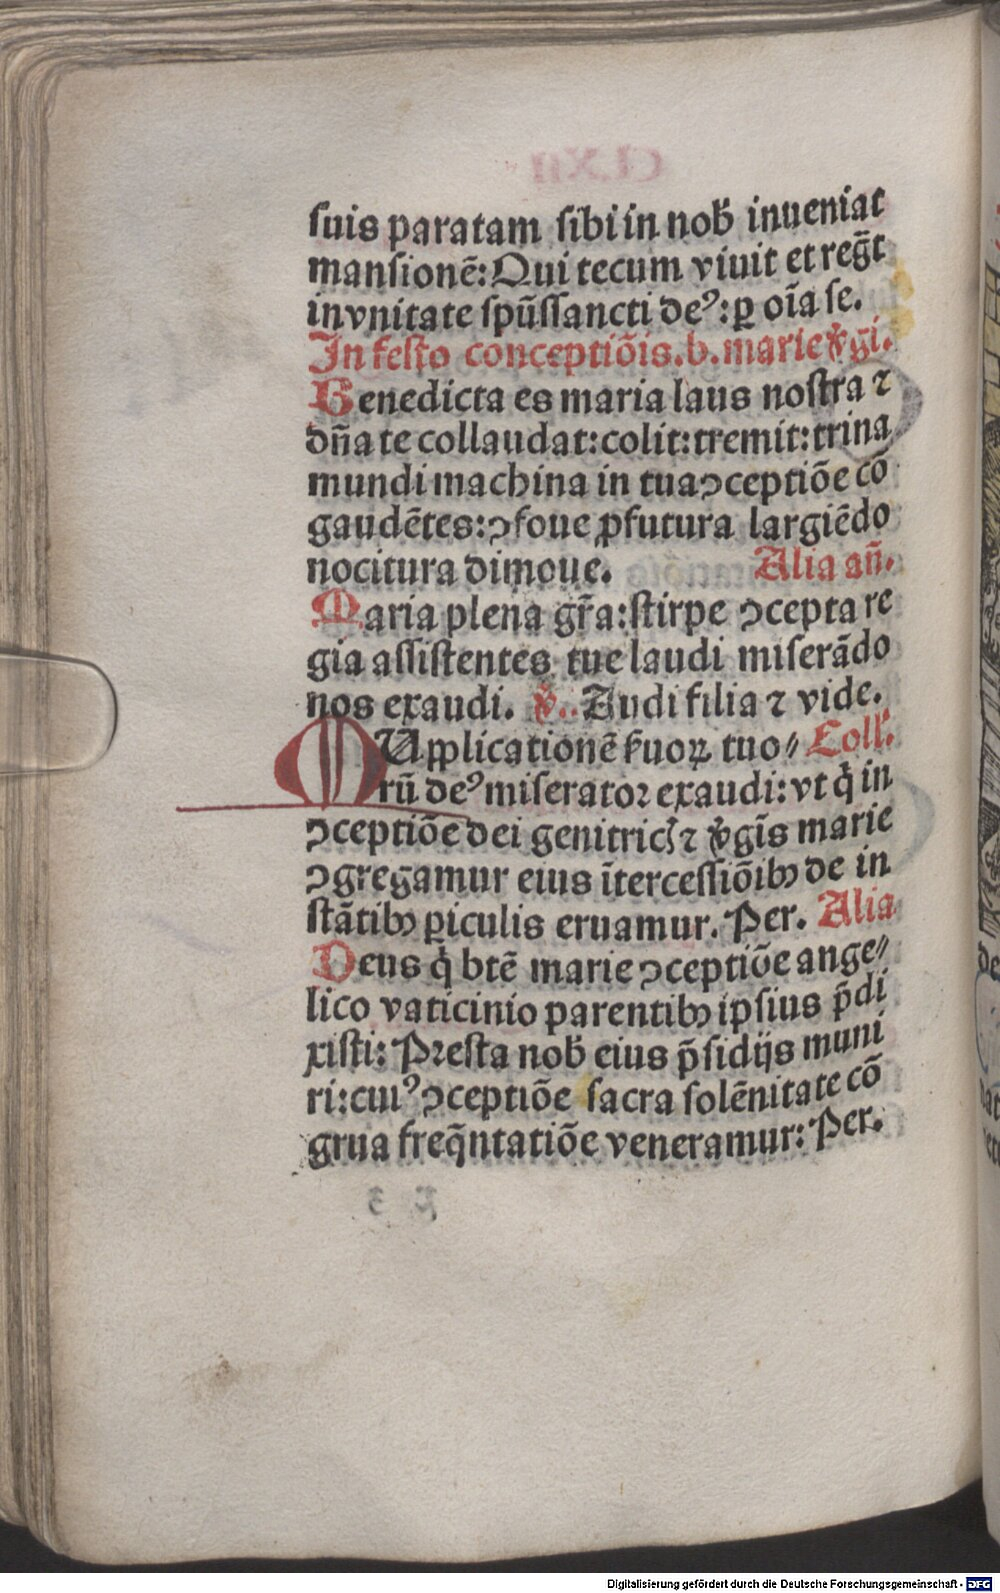 suis paratam sibi in nob̄ inueniat
mansionē: Qui tecum viuit et reg̃t
in vnitate spūssancti deꝰ: ꝑ oīa se.
In festo conceptiōis. b. marie v̄gi.
Benedicta es maria laus nostra ⁊
dn̄a te collaudat: colit: tremit: trina
mundi machina in tua ꝯceptiōe cō
gaudētes: ꝯfoue ꝓfutura largiēdo
nocitura dimoue. Alia an̄.
Maria plena gr̄a: stirpe ꝯcepta re
gia assistentes tue laudi miserādo
nos exaudi. ℣. Audi filia ⁊ vide.
SUpplicationē ẜuoꝝ tuo⸗ Coll̄.
rū deꝰ miserator exaudi: vt q̇ in
ꝯceptiōe dei genitricꝭ ⁊ v̄gīs marie
ꝯgregamur eius ītercessiōibꝫ de in
stātibꝫ ꝑiculis eruamur. Per. Alia
Deus q̇ btē marie ꝯceptiōe ange⸗
lico vaticinio parentibꝫ ipsius p̄di
xisti: Presta nob̄ eius p̄sidijs muni
ri: cuiꝰ ꝯceptiōe sacra solēnitate cō
grua freq̄ntatiōe veneramur: Per.
Digitalisierung gefördert durch die Deutsche Forschungsgemeinschaft - DFG